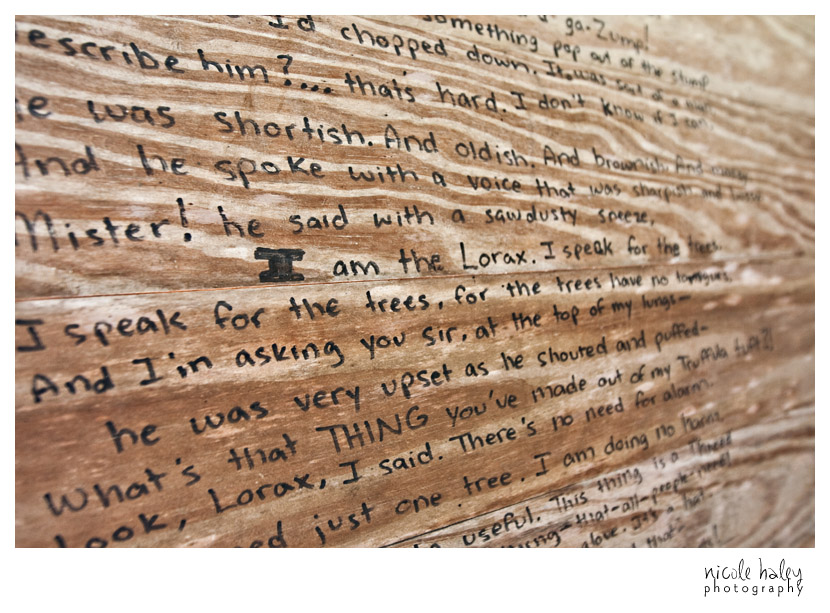 ga-Zump!
something pop out of the stump
I'd chopped down. It was sort of a man.
escribe him?... that's hard. I don't know if I can.
e was shortish. And oldish. And brownish. And mossy.
And he spoke with a voice that was sharpish and bossy
Mister! he said with a sawdusty sneeze,
I am the Lorax. I speak for the trees.
I speak for the trees, for the trees have no tongues.
And I'm asking you sir, at the top of my lungs-
he was very upset as he shouted and puffed-
What's that THING you've made out of my Truffula tuft?!
Look, Lorax, I said. There's no need for alarm.
ed just one tree. I am doing no harm.
useful. This thing is a Thneed
thing-that-all-people-need!
glove. It's a hat.
that.
nicole haley
photography